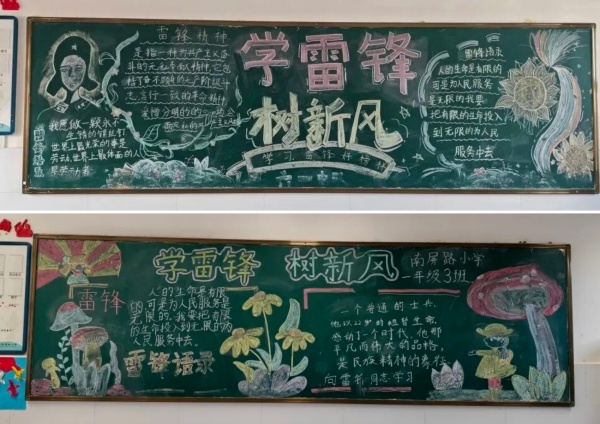 雷锋精神
是指一种为共产主义奋
斗的无私奉献精神,它包
学雷锋
树新风
学习雷锋好榜样
我愿做一颗永不
生锈的螺丝钉
世界上最光荣的事是
劳动,世界上最体面的人
是劳动者
雷锋语录
人的生命是有限的
可是为人民服务
是无限的我要
把有限的生命投入
到无限的为人民
服务中去
学雷锋 树新风
南屏路小学
一年级3班
雷锋
人的生命是有限
的,可是为人民服务是
无限的。我要把有限
的生命投入到无限的为
人民服务中去。
雷锋语录
一个普通的士兵,
他以22岁的短暂生命
感动了一个时代,他那
平凡而伟大的品格,
是民族精神的象征。
向雷锋同志学习